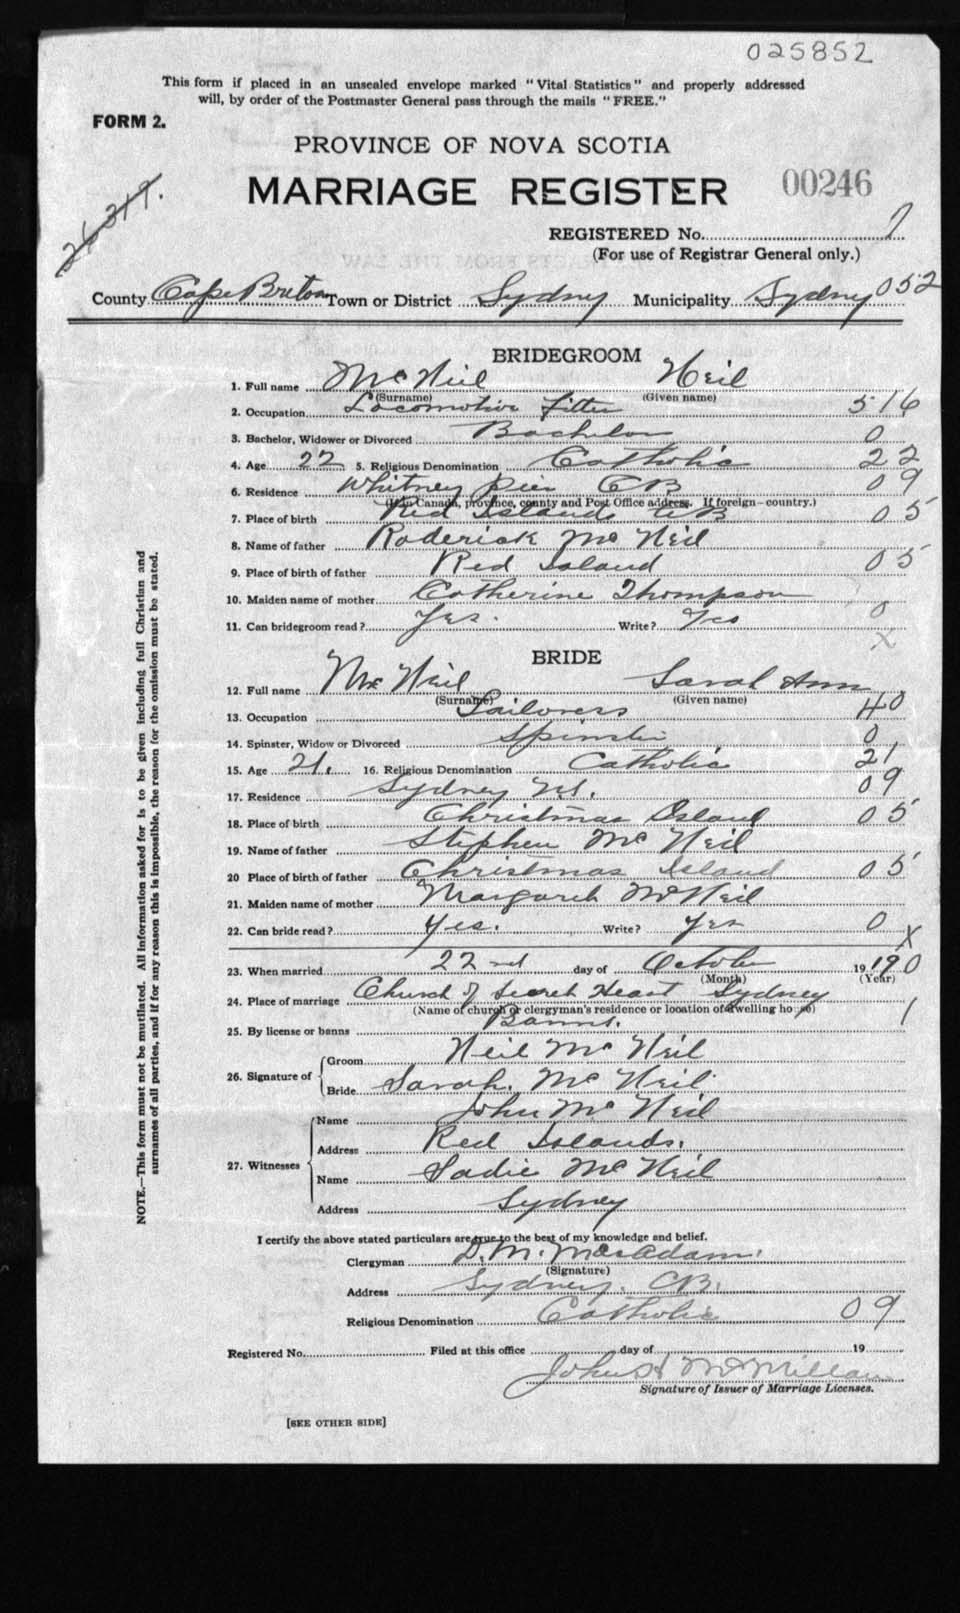 025852
This form if placed in an unsealed envelope marked "Vital Statistics" and properly addressed
will, by order of the Postmaster General pass through the mails "FREE."
FORM 2.
PROVINCE OF NOVA SCOTIA
MARRIAGE REGISTER 00246
REGISTERED No. 1
(For use of Registrar General only.)
County Cape Breton Town or District Sydney Municipality Sydney 052
BRIDEGROOM
1. Full name McNeil Neil
(Surname) (Given name)
2. Occupation Locomotive Fitter 516
3. Bachelor, Widower or Divorced Bachelor 0
4. Age 22 5. Religious Denomination Catholic 22
6. Residence Whitney Pier CB 09
(If in Canada, province, county and Post Office address. If foreign—country.)
7. Place of birth Red Islands CB 05
8. Name of father Roderick McNeil
9. Place of birth of father Red Island 05
10. Maiden name of mother Catherine Thompson
11. Can bridegroom read? Yes. Write? Yes 0
X
BRIDE
12. Full name McNeil Sarah Ann
(Surname) (Given name)
13. Occupation Tailoress 40
14. Spinster, Widow or Divorced Spinster 0
15. Age 21. 16. Religious Denomination Catholic 21
17. Residence Sydney N.S. 09
18. Place of birth Christmas Island 05
19. Name of father Stephen McNeil
20 Place of birth of father Christmas Island 05
21. Maiden name of mother Margaret McNeil
22. Can bride read? Yes. Write? Yes 0 X
23. When married 22nd day of October 19 19 0
(Month) (Year)
24. Place of marriage Church of Sacred Heart Sydney
(Name of church or clergyman's residence or location of dwelling house) 1
25. By license or banns Banns.
26. Signature of Groom Neil McNeil
Bride Sarah. McNeil
27. Witnesses Name John McNeil
Address Red Islands.
Name Sadie McNeil
Address Sydney
I certify the above stated particulars are true to the best of my knowledge and belief.
Clergyman D. M. MacAdam.
(Signature)
Address Sydney. C.B.
Religious Denomination Catholic 09
Registered No. Filed at this office day of 19
John H McMillan
Signature of Issuer of Marriage Licenses.
[SEE OTHER SIDE]
NOTE.—This form must not be mutilated. All information asked for is to be given including full Christian and
surnames of all parties, and if for any reason this is impossible, the reason for the omission must be stated.